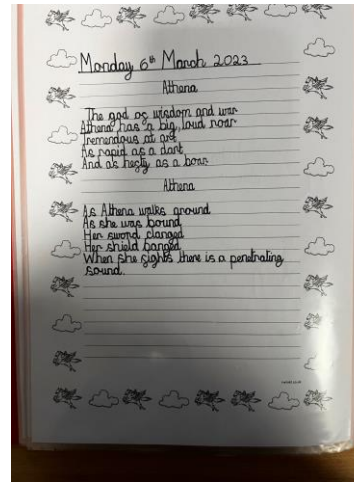 Monday 6th March 2023
Athena
The god of wisdom and war
Athena has a big, loud roar
Tremendous at art
As rapid as a dart
And as hefty as a boar.
Athena
As Athena walks around
As she was bound
Her sword clanged
Her shield banged
When she sighs there is a penetrating
sound.